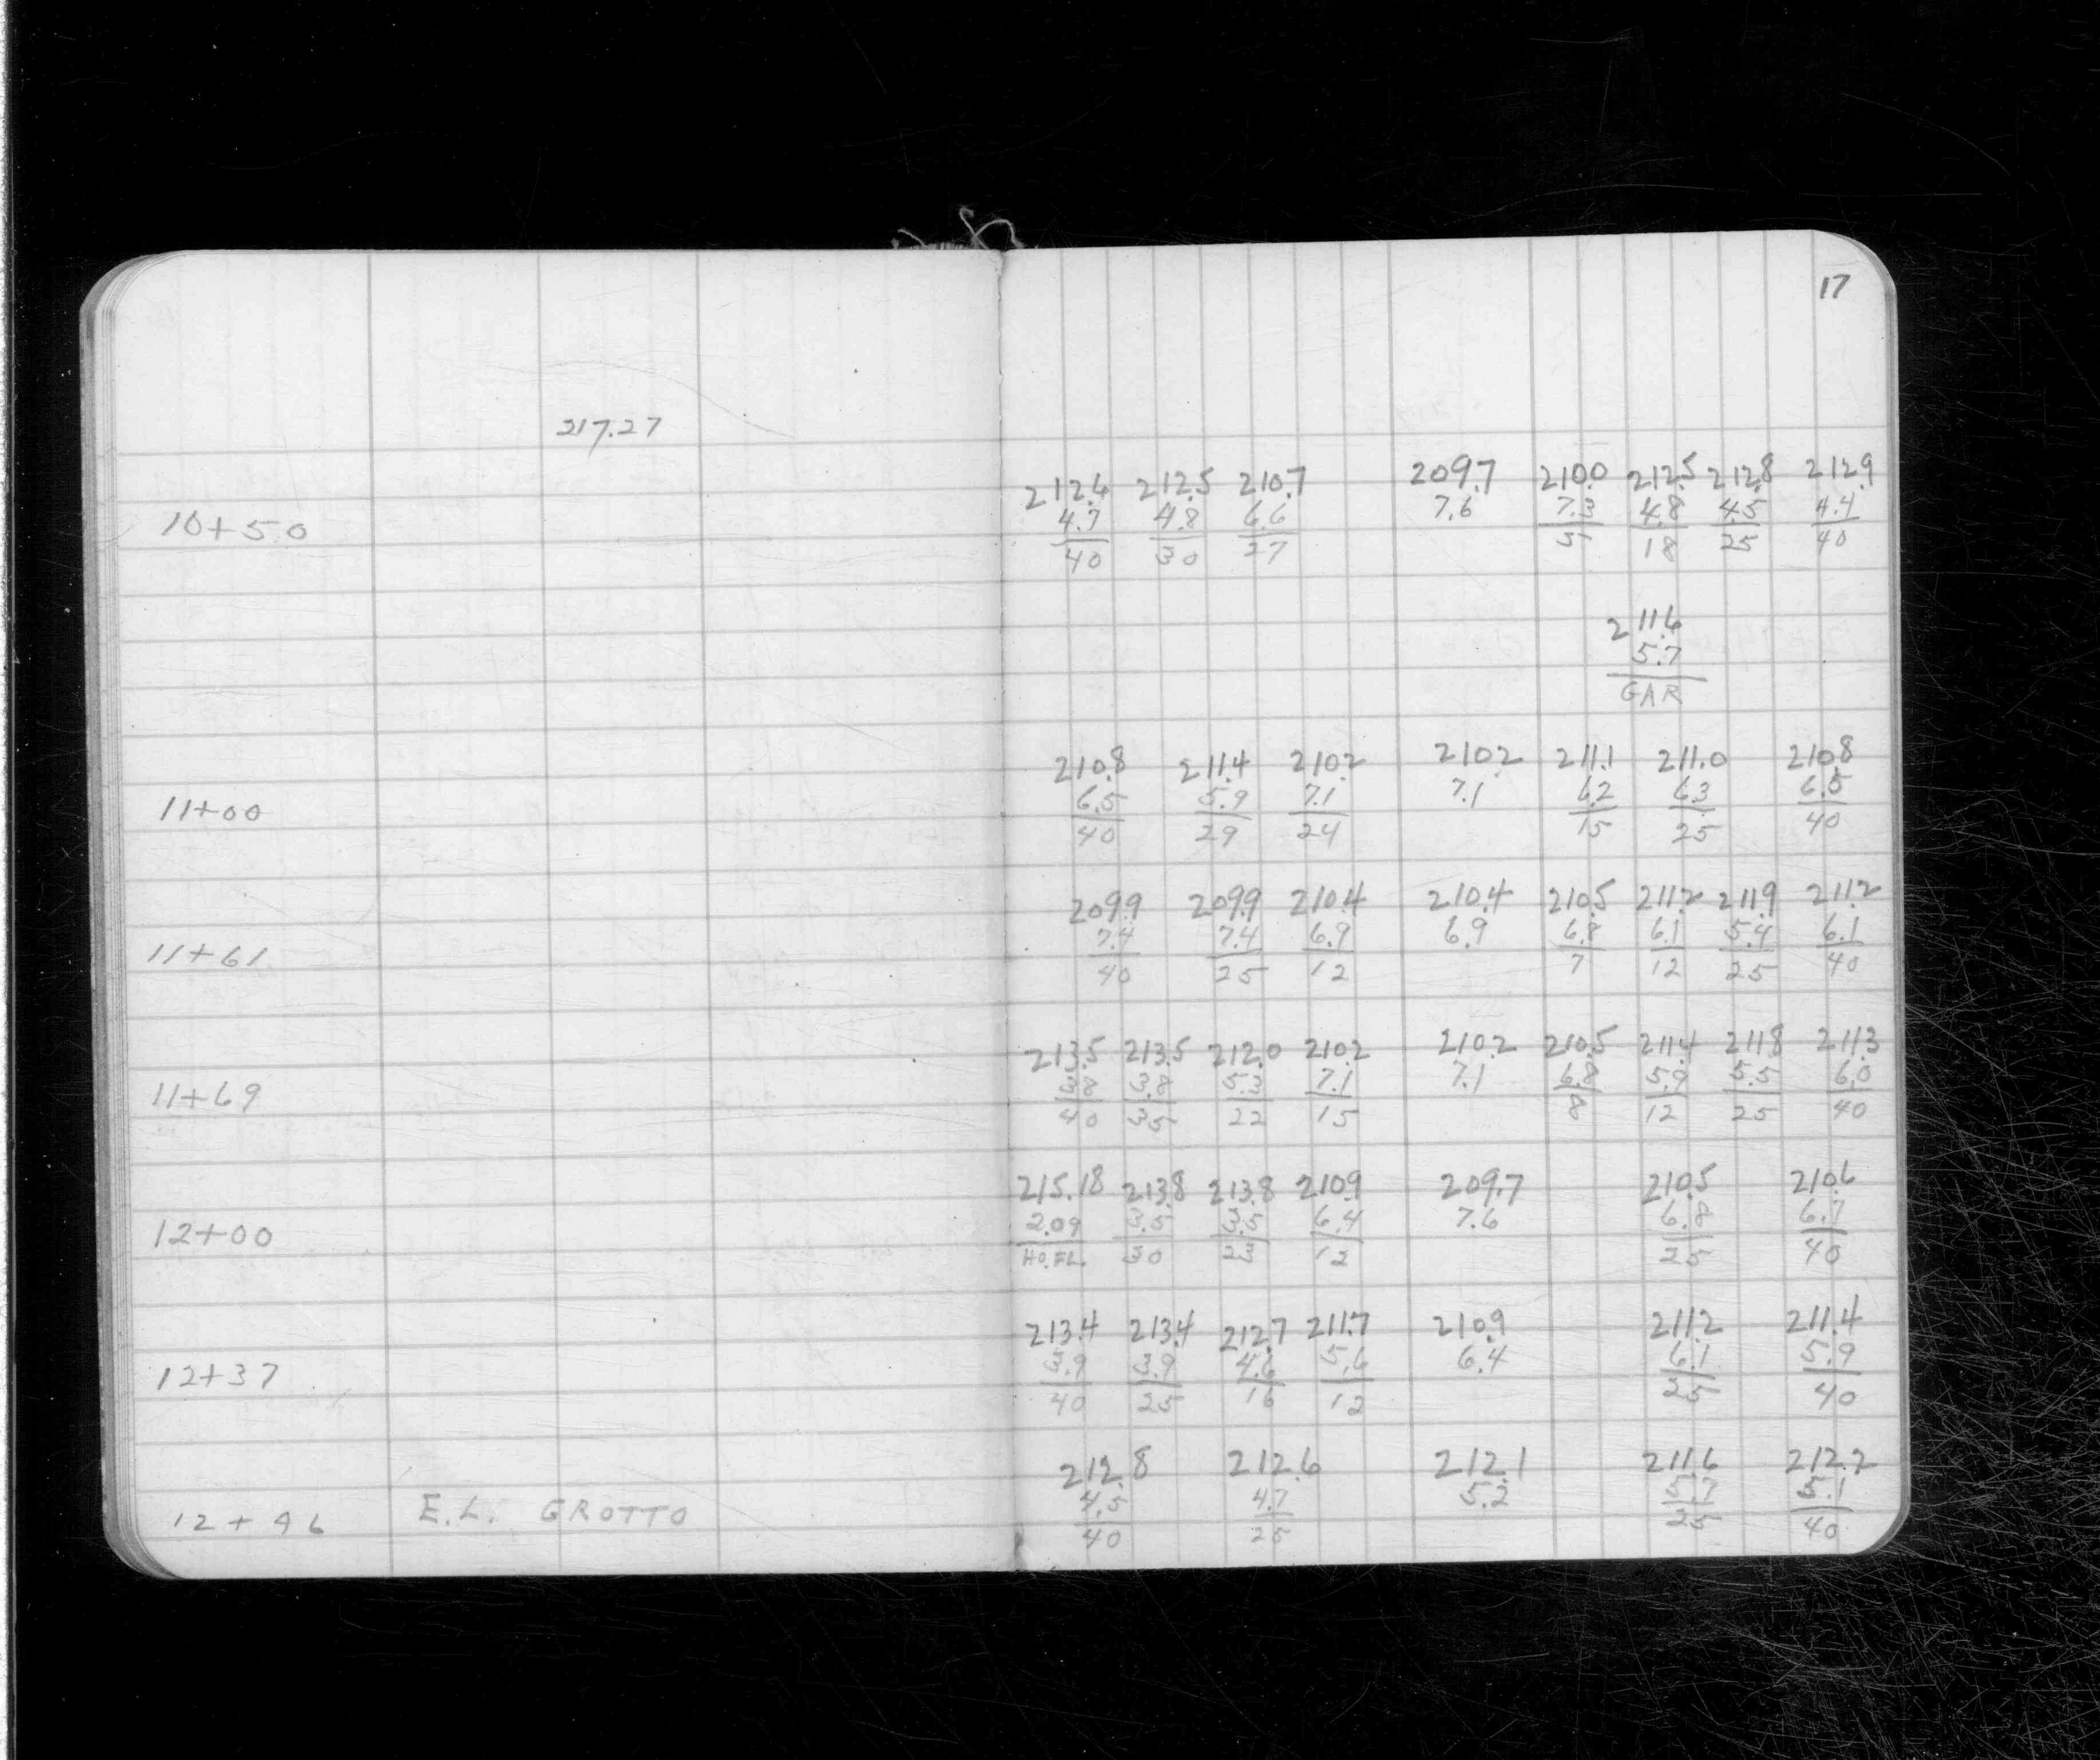 17
217.27
212.6 212.5 210.7 209.7 210.0 212.5 212.8 212.9
10+50 4.7 4.8 6.6 7.6 7.3 4.8 4.5 4.4
40 30 27 5 18 25 40
211.6
5.7
GAR
210.8 211.4 210.2 210.2 211.1 211.0 210.8
11+00 6.5 5.9 7.1 7.1 6.2 6.3 6.5
40 29 24 15 25 40
209.9 209.9 210.4 210.4 210.5 211.2 211.9 211.2
11+61 7.4 7.4 6.9 6.9 6.8 6.1 5.4 6.1
40 25 12 7 12 25 40
213.5 213.5 212.0 210.2 210.2 210.5 211.4 211.8 211.3
11+69 3.8 3.8 5.3 7.1 7.1 6.8 5.9 5.5 6.0
40 35 22 15 8 12 25 40
215.18 213.8 213.8 210.9 209.7 210.5 210.6
12+00 2.09 3.5 3.5 6.4 7.6 6.8 6.7
HO.FL. 30 23 12 25 40
213.4 213.4 212.7 211.7 210.9 211.2 211.4
12+37 3.9 3.9 4.6 5.6 6.4 6.1 5.9
40 25 16 12 25 40
212.8 212.6 212.1 211.6 212.2
12+96 E.L. GROTTO 4.5 4.7 5.2 5.7 5.1
40 25 25 40